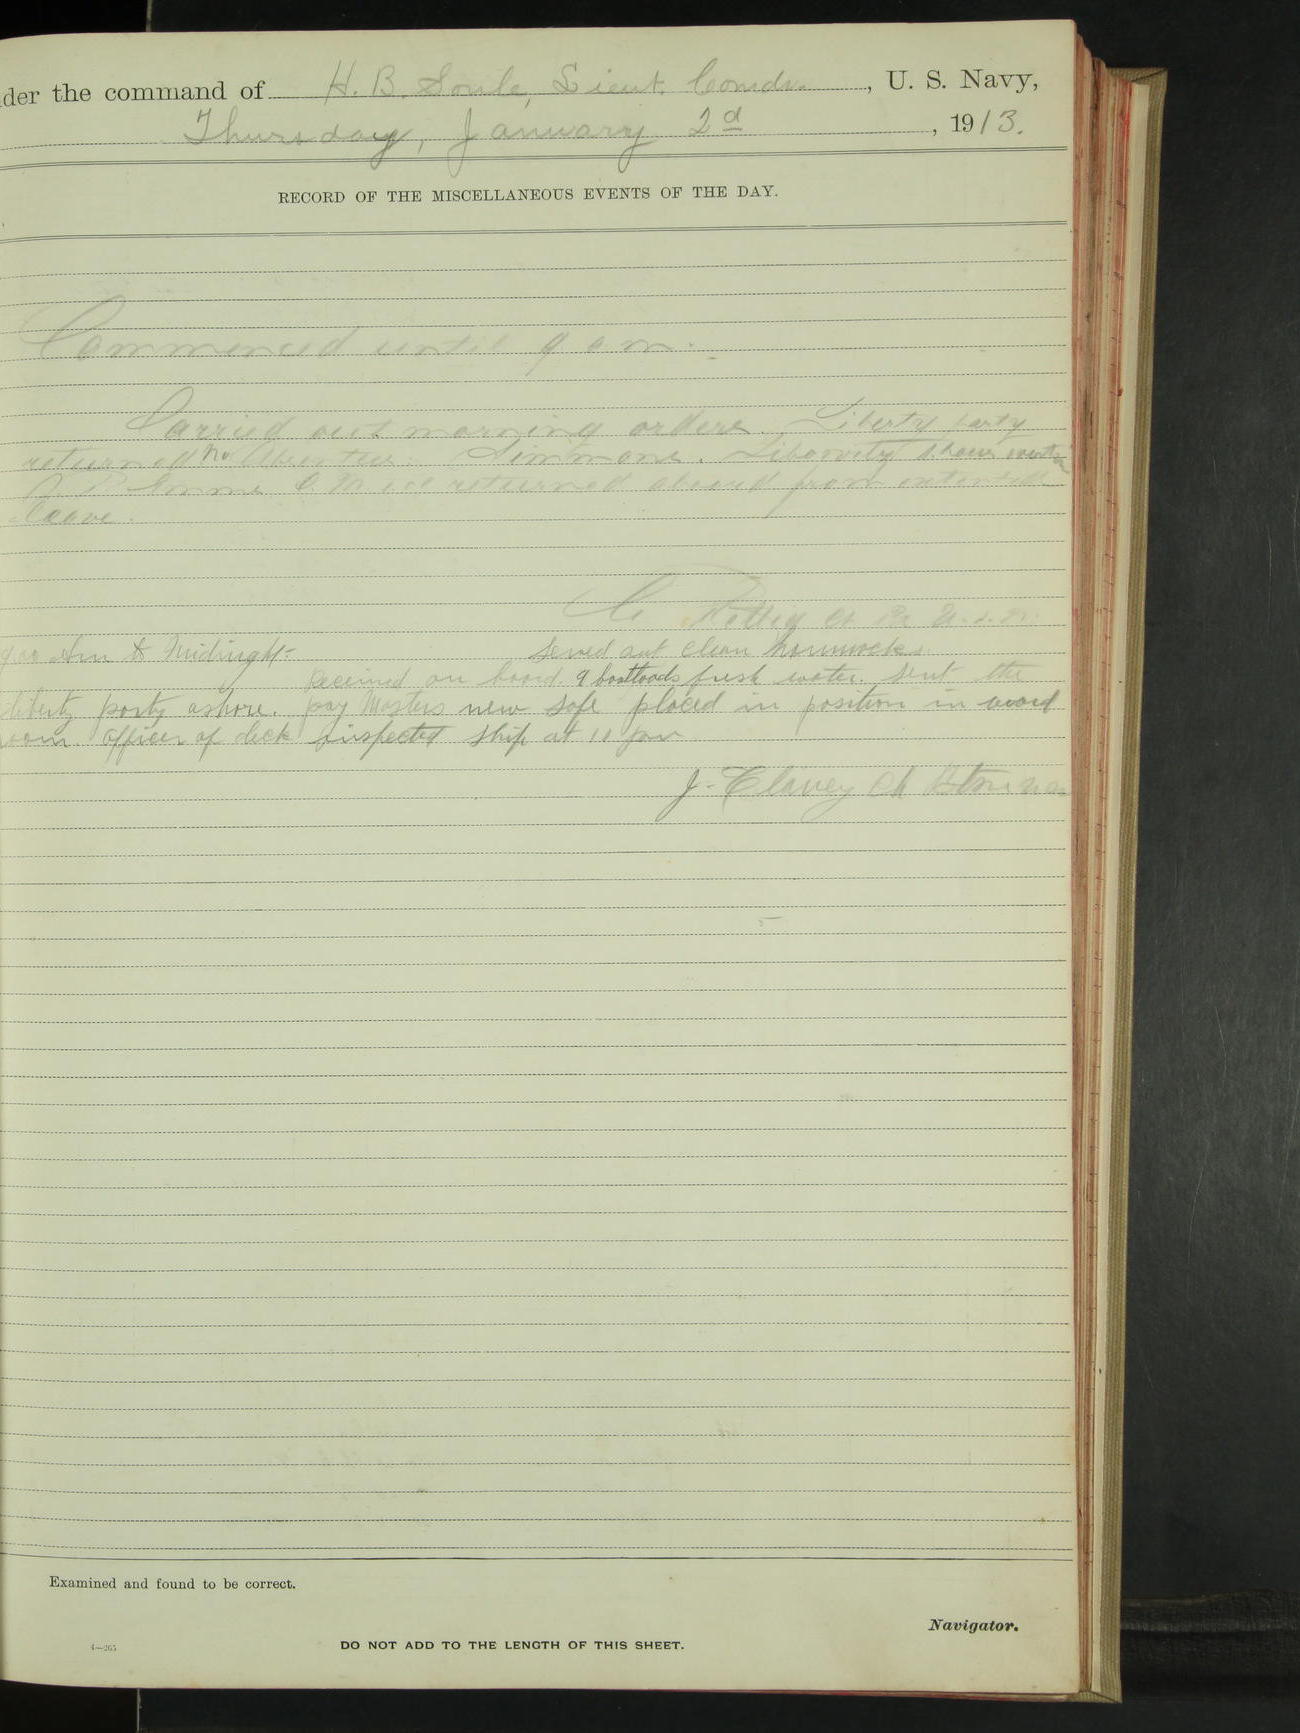 der the command of H. B. Soule, Lieut. Comdr., U. S. Navy,
Thursday, January 2d, 1913.
RECORD OF THE MISCELLANEOUS EVENTS OF THE DAY.
Commenced until 9 a m.
Carried out morning orders. Liberty party
returned no absentees. Simmons.
returned aboard from extended
leave.
C.
9 00 Am to Midnight- Served out clean hammocks.
Received on board 9 boatloads fresh water. Sent the
liberty party ashore. pay Masters new safe placed in position in ward
room. Officer of deck inspected ship at 10 pm
J. Clancy Ch
Examined and found to be correct.
Navigator.
4—265
DO NOT ADD TO THE LENGTH OF THIS SHEET.